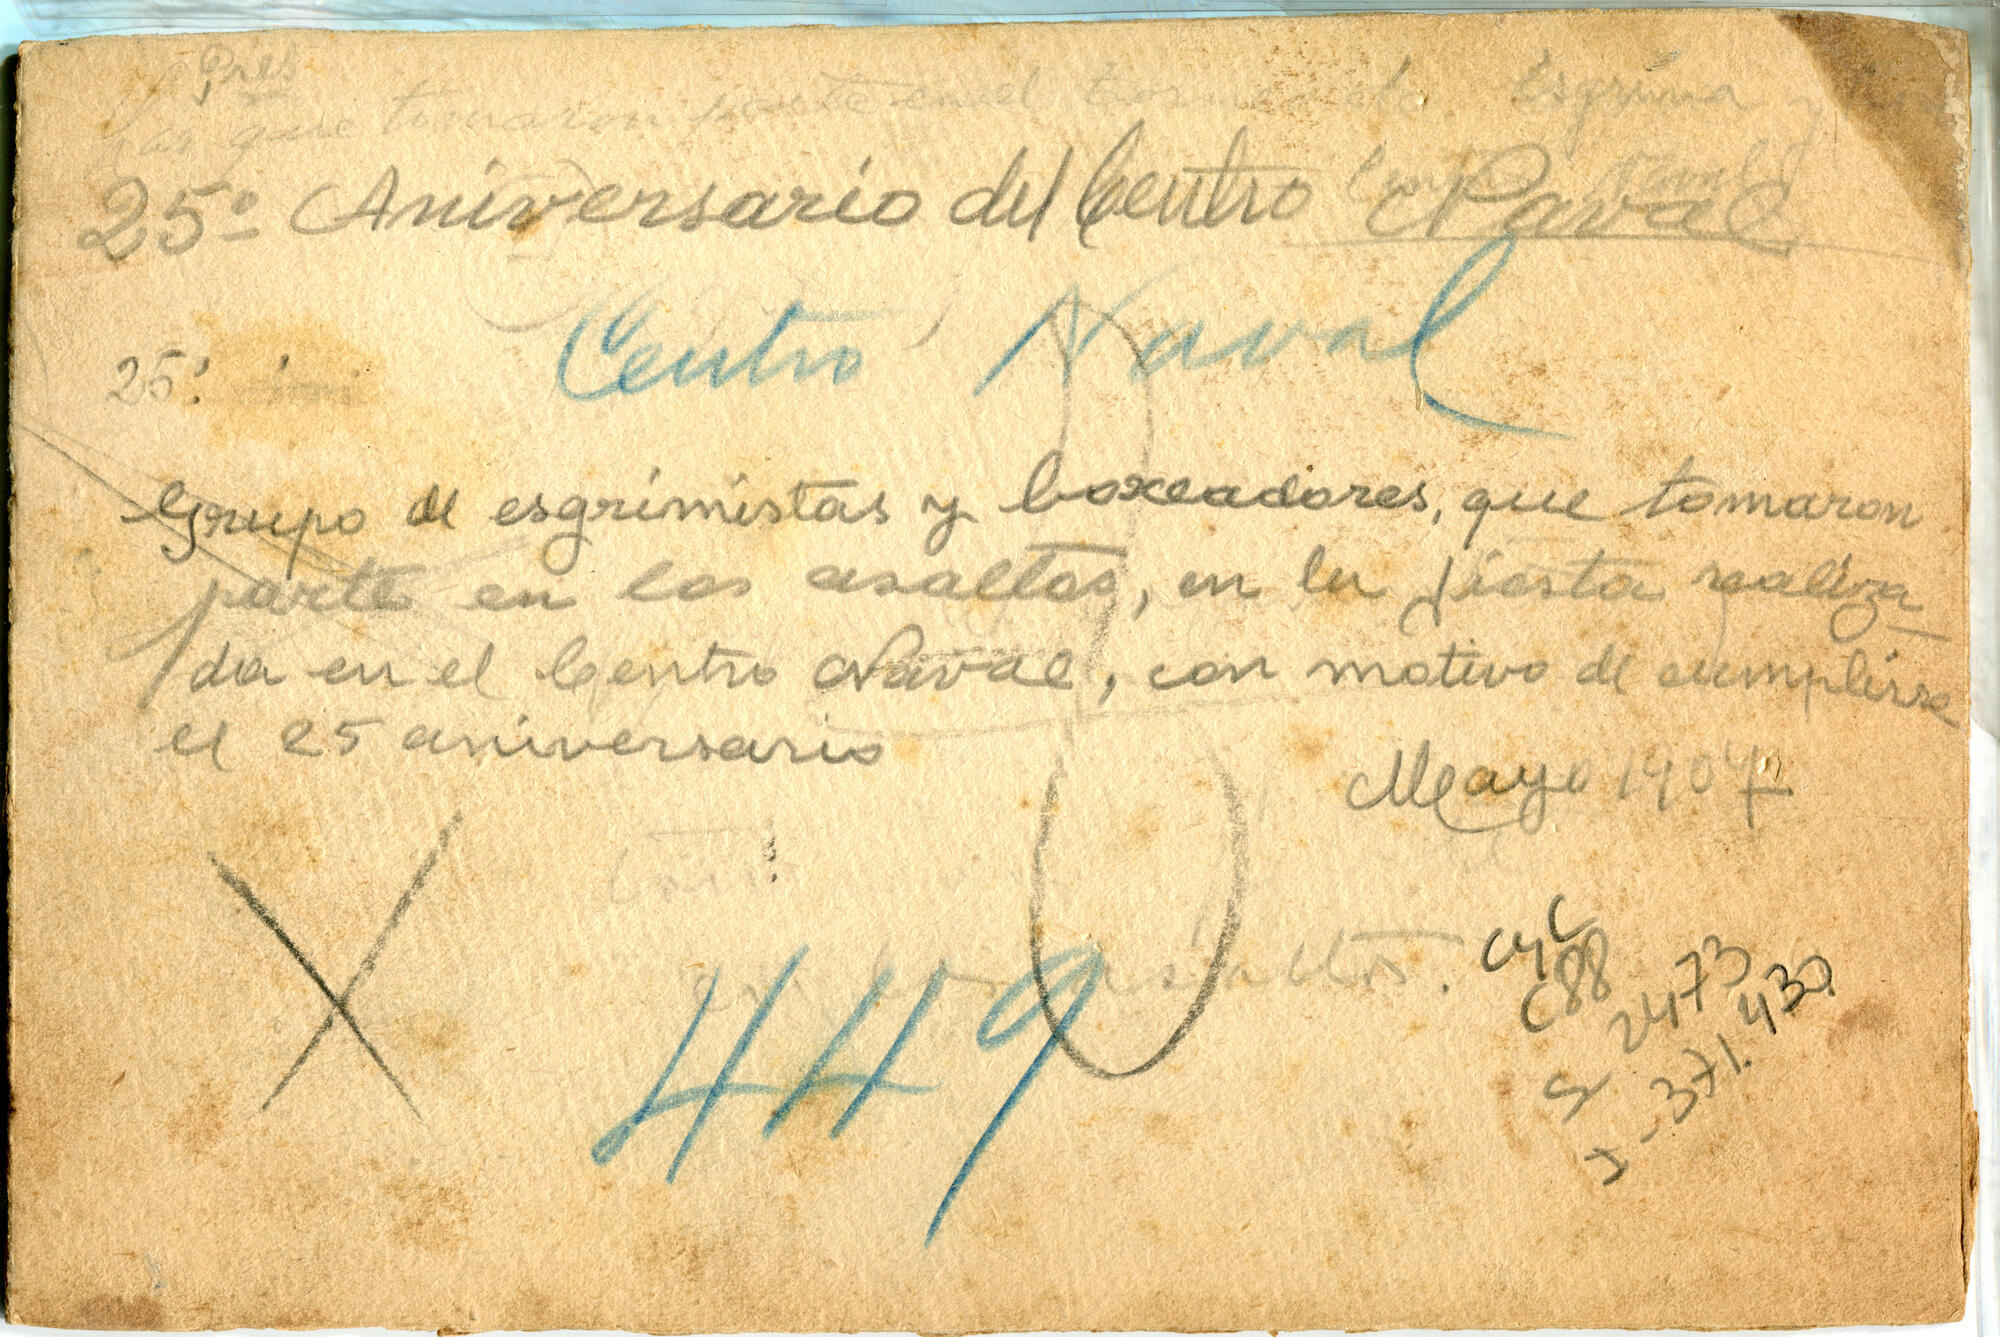 Pres
los que tomaron parte en el torneo de Esgrima y
Centro Naval
25º Aniversario del Centro Naval
Centro Naval
25º
Grupo de esgrimistas y boxeadores, que tomaron
parte en los asaltos, en la fiesta realiza
da en el Centro Naval, con motivo de cumplirse
el 25 aniversario
Mayo 1907
en los asaltos.
449
CyC
C88
2473
S
X-371.430